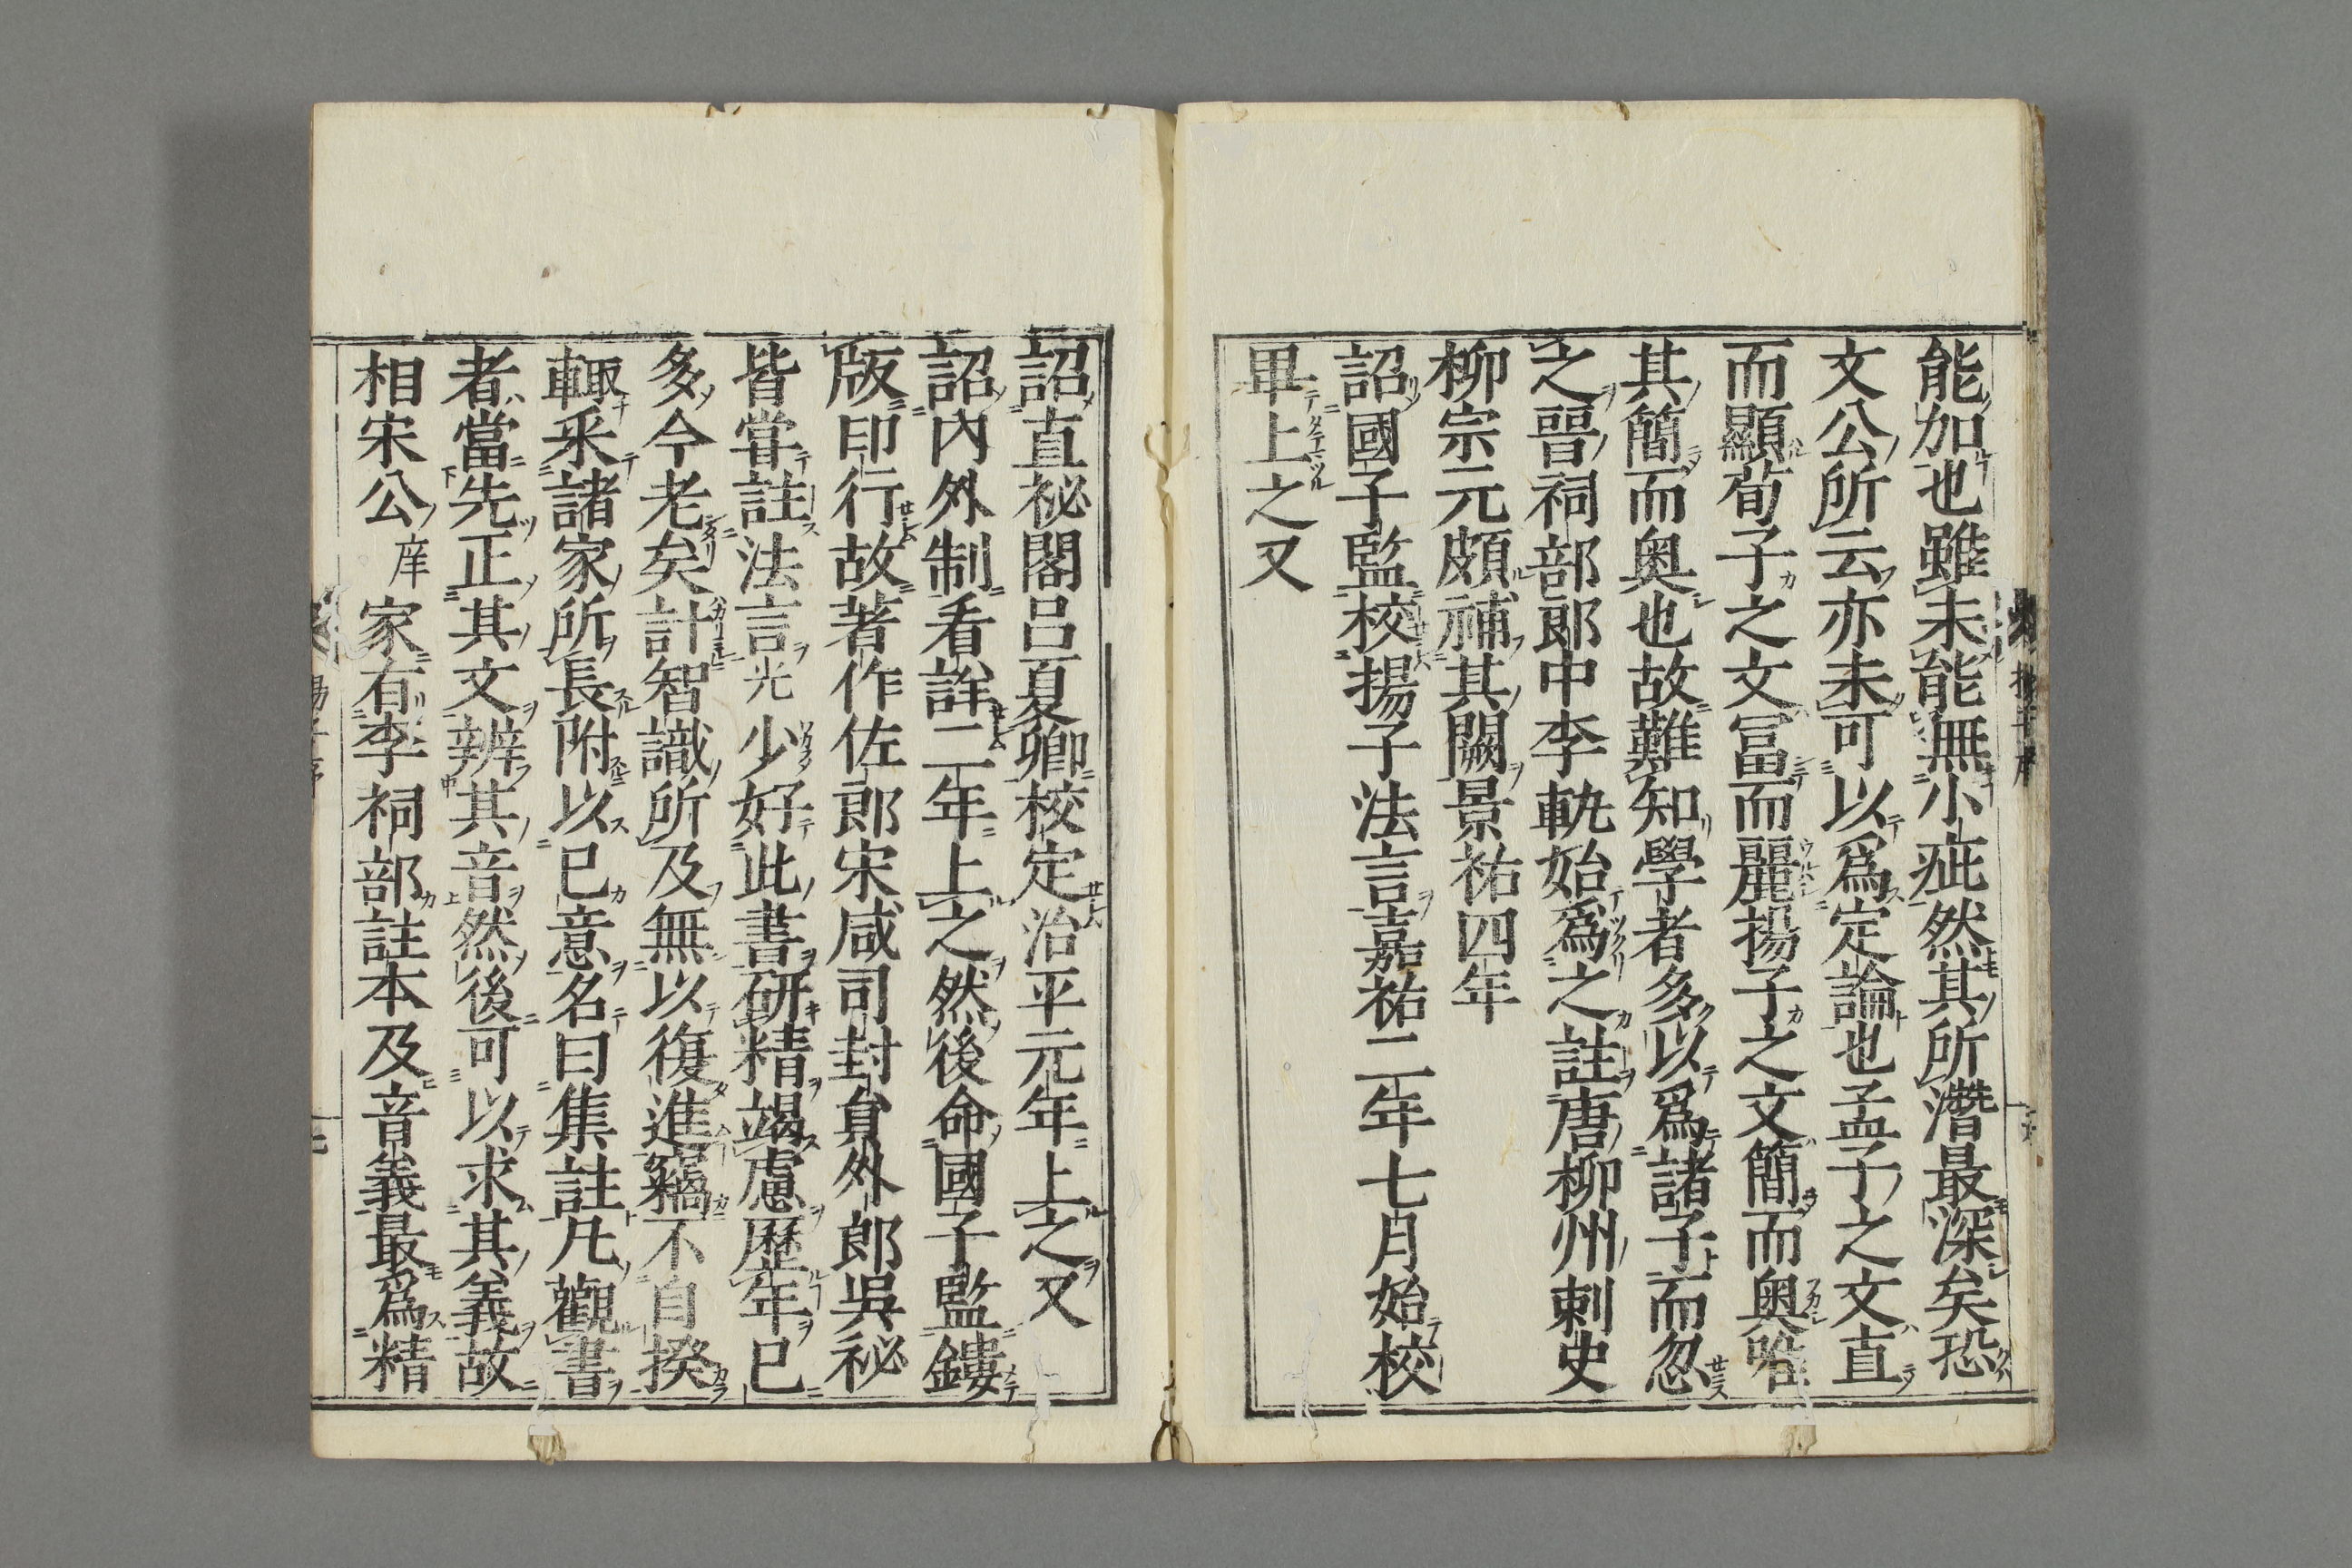 能加也雖未能無小疵然其所潛最深矣恐
文公所云亦未可以爲定論也孟子之文直
而顯荀子之文冨而麗揚子之文簡而奥唯
其簡而奥也故難知學者多以爲諸子而忽
之晉祠部郎中李軌始爲之註唐柳州刺史
柳宗元頗補其闕景祐四年
詔國子監校揚子法言嘉祐二年七月始校
畢上之又
詔直祕閣呂夏卿校定治平元年上之又
詔内外制看詳二年上之然後命國子監鏤
版印行故著作佐郎宋咸司封負外郎吳祕
皆甞註法言光少好此書研精竭慮歴年已
多今老矣計智識所及無以復進竊不自揆
輙采諸家所長附以已意名曰集註凡觀書
者當先正其文辨其音然後可以求其義故
相宋公庠家有李祠部註本及音義最爲精